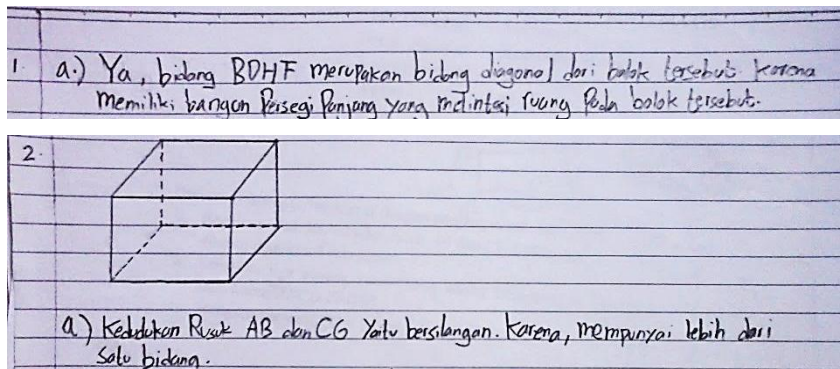 1. a.) Ya, bidang BDHF merupakan bidang diagonal dari balok tersebut karena
memiliki bangun Persegi Panjang yang melintasi ruang Pada balok tersebut.
2.
a) Kedudukan Rusuk AB dan CG Yaitu bersilangan. Karena, mempunyai lebih dari
satu bidang.